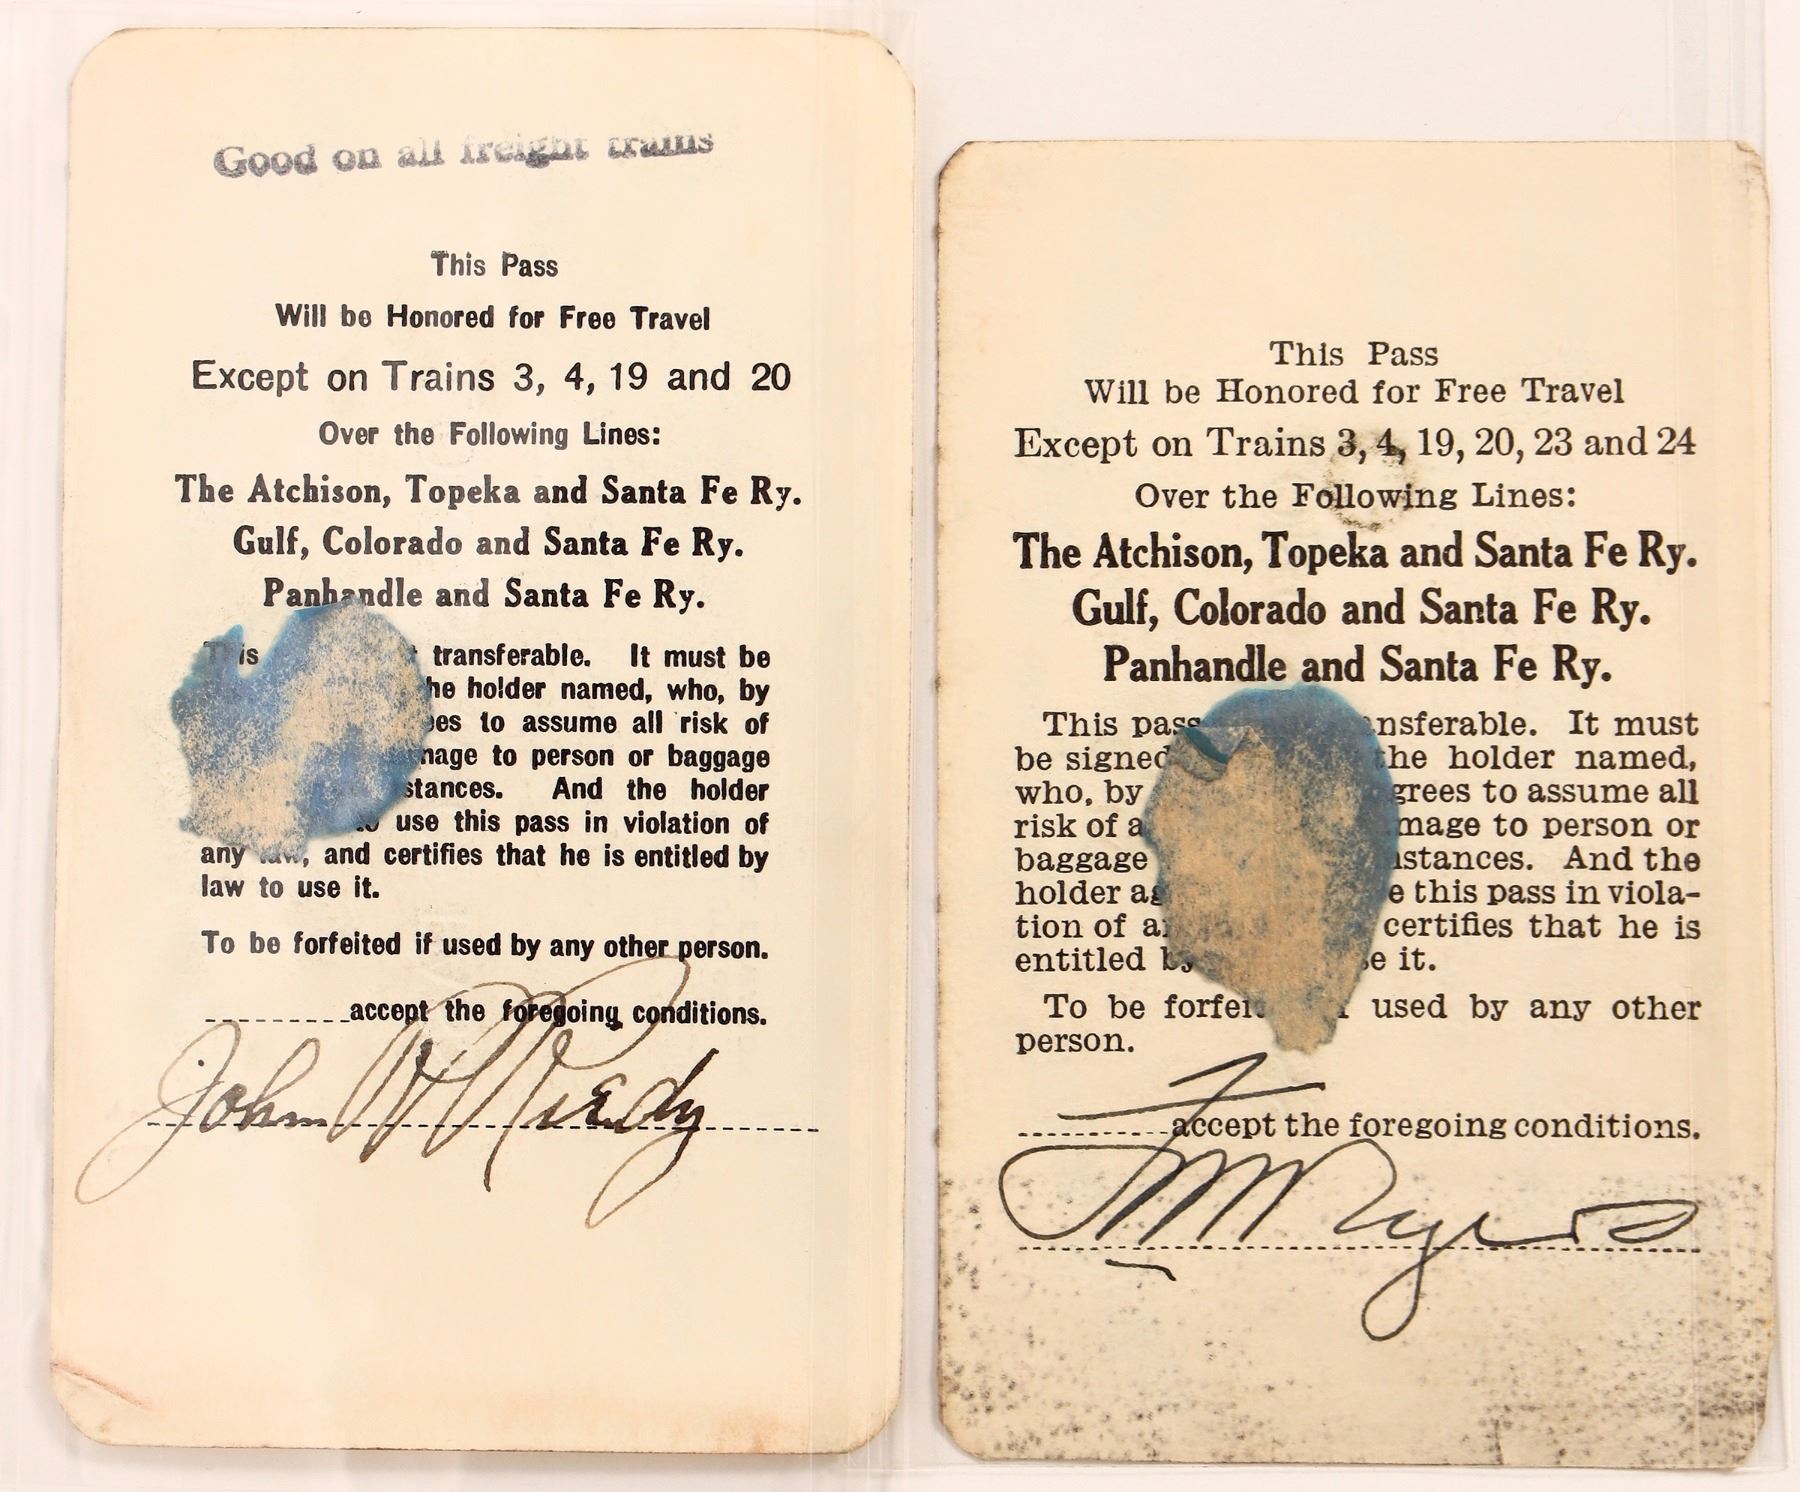 Good on all freight trains
This Pass
Will be Honored for Free Travel
Except on Trains 3, 4, 19 and 20
Over the Following Lines:
The Atchison, Topeka and Santa Fe Ry.
Gulf, Colorado and Santa Fe Ry.
Panhandle and Santa Fe Ry.
This transferable. It must be
the holder named, who, by
to assume all risk of
to person or baggage
And the holder
use this pass in violation of
any law, and certifies that he is entitled by
law to use it.
To be forfeited if used by any other person.
accept the foregoing conditions.
John
This Pass
Will be Honored for Free Travel
Except on Trains 3, 4, 19, 20, 23 and 24
Over the Following Lines:
The Atchison, Topeka and Santa Fe Ry.
Gulf, Colorado and Santa Fe Ry.
Panhandle and Santa Fe Ry.
This pass It must
be signed the holder named,
who, by to assume all
risk of to person or
baggage And the
holder this pass in viola-
tion of certifies that he is
entitled it.
To be used by any other
person.
I
accept the foregoing conditions.